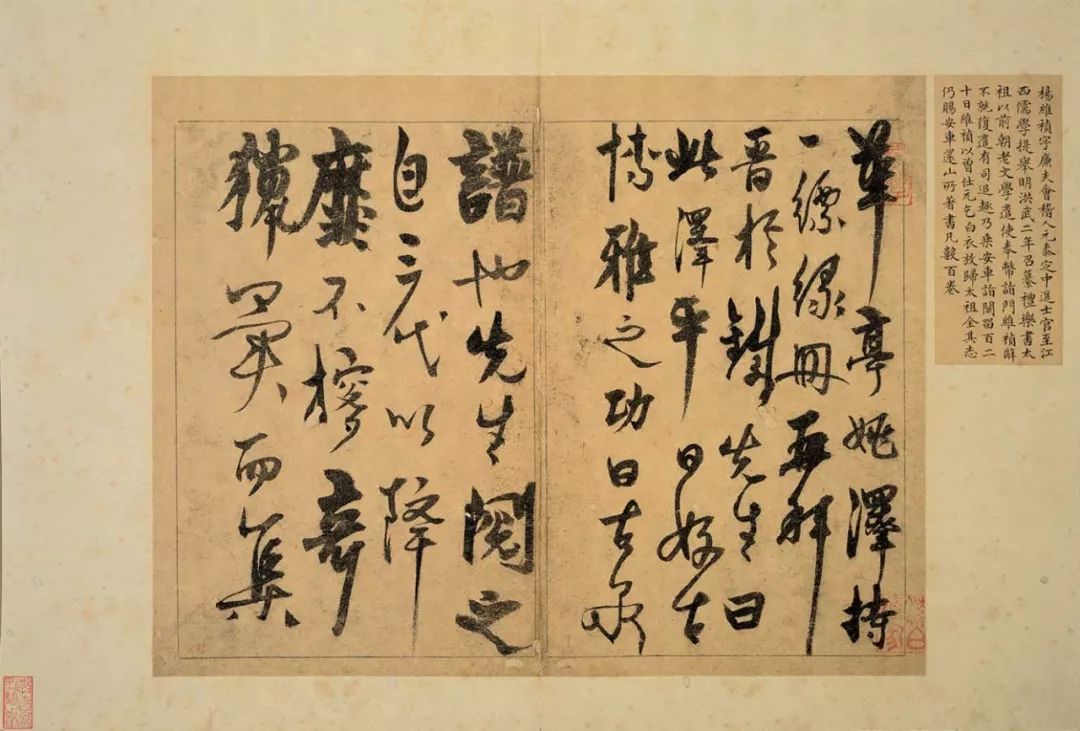 楊維禎字廉夫會稽人元泰定中進士官至江
西儒學提舉明洪武二年召纂禮樂書太
祖以前朝老文學遣使奉幣詣門維禎辭
不就復遣有司追趣乃乘安車詣闕留百二
十日維禎以曾仕元乞白衣放歸太祖全其志
仍賜安車還山所著書凡數百卷
華亭姚澤持
一縹緣冊再拜
晉於鐵先生曰
此澤平日好古
博雅之功曰古泉
譜也先生閱之
自三代以降
靡不奇
獵異而集